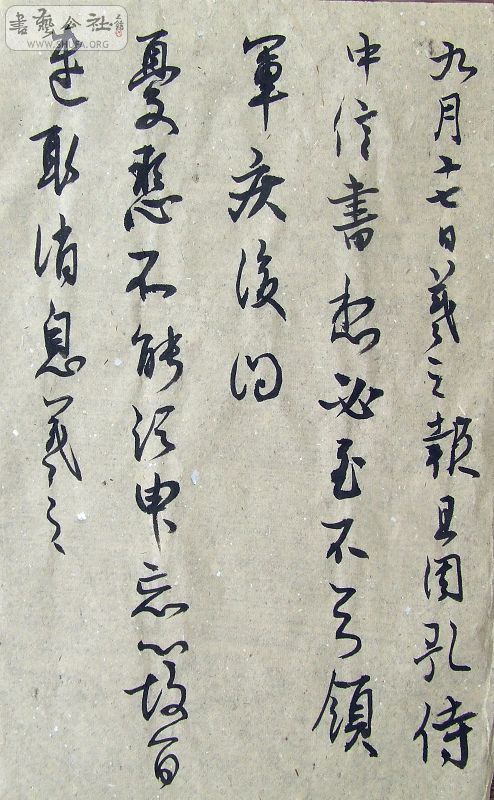 書藝公社
SHUFA.ORG
九月十七日羲之報且因孔侍
中信書想必至不知領
軍疾後問
憂懸不能須臾忘心故旨
遣取消息羲之